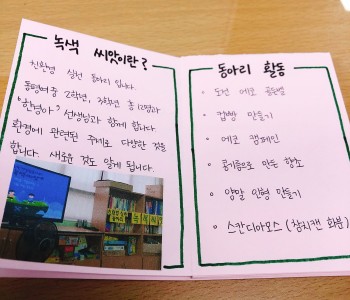 녹색 씨앗이란?
친환경 실천 동아리 입니다.
동평여중 2학년, 3학년 총 12명과
선생님과 함께 합니다.
환경에 관련된 주제로 다양한 것을
합니다. 새로운 것도 알게 됩니다.
동아리 활동
• 도전 에코 골든벨
• 캠페인 만들기
• 에코 캠페인
• 콩기름으로 만든 향초
• 양말 인형 만들기
• 스칸디아모스 (참치캔 화분)